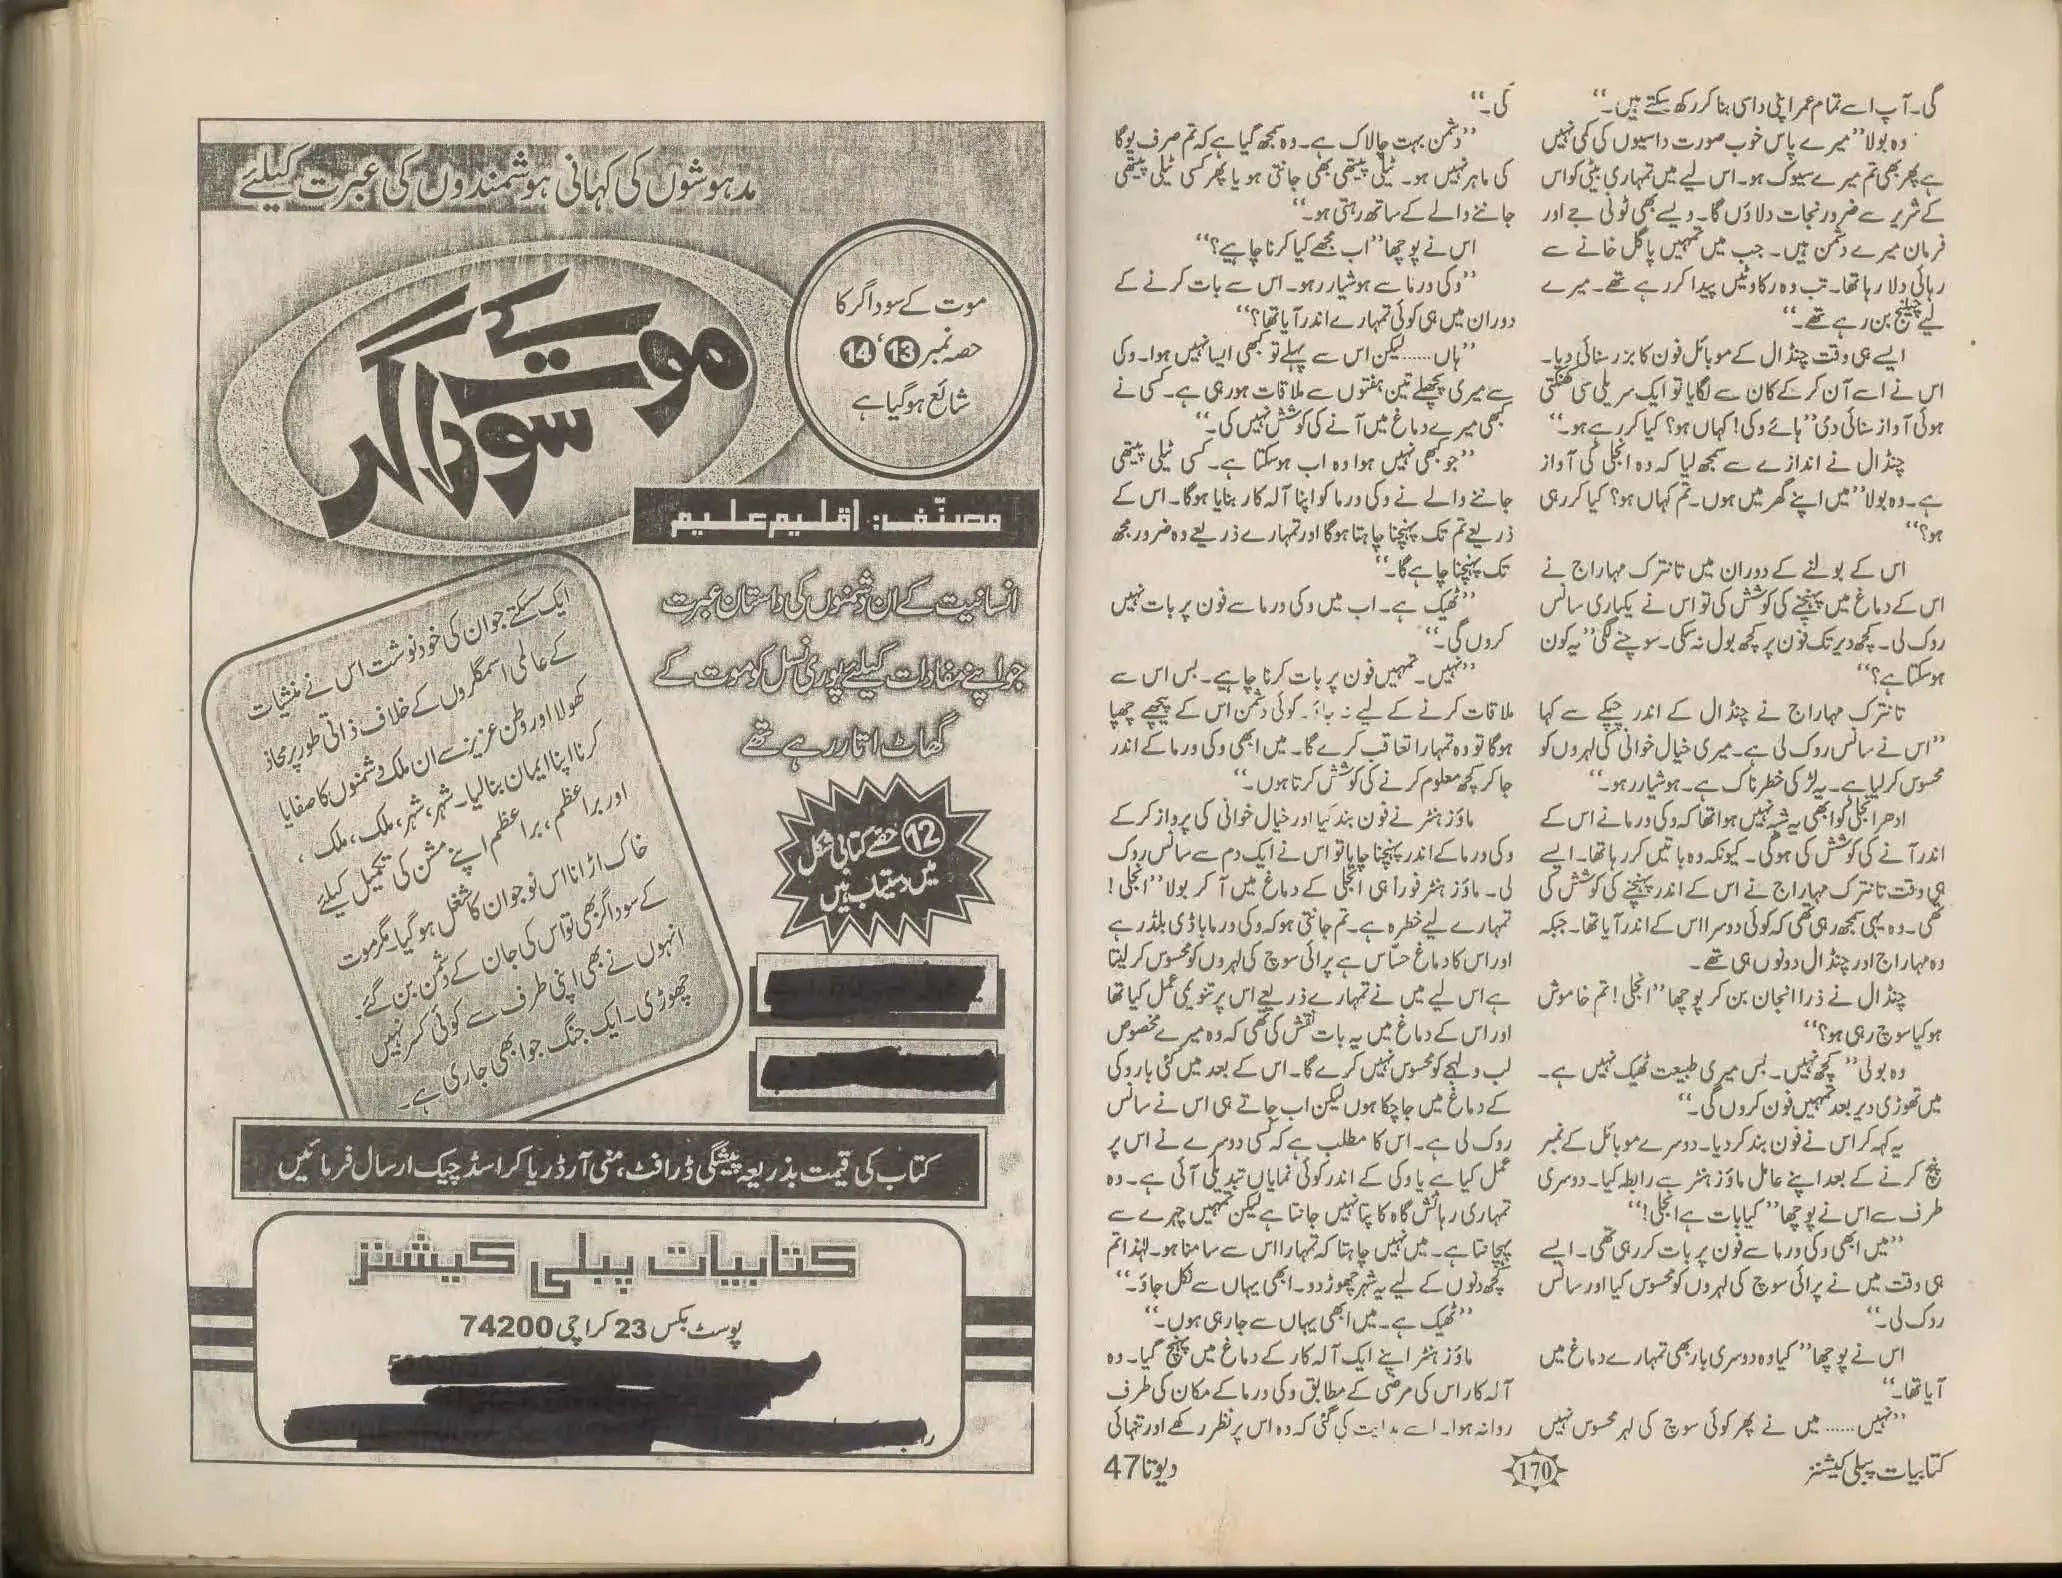 گی۔ آپ اسے تمام عمر اپنی داسی بنا کر رکھ سکتے ہیں۔‘‘
وہ بولا’’ میرے پاس خوب صورت داسیوں کی کمی نہیں
ہے پھر بھی تم میرے سیوک ہو۔ اس لیے میں تمہاری بیٹی کو اس
کے شریر سے ضرور نجات دلاؤں گا۔ ویسے بھی ٹونی جے اور
فرمان میرے دشمن ہیں۔ جب میں تمہیں پاگل خانے سے
رہائی دلا رہا تھا۔ تب وہ رکاوٹیں پیدا کر رہے تھے۔ میرے
لیے چیلنج بن رہے تھے۔‘‘
ایسے ہی وقت چنڈال کے موبائل فون کا بزر سنائی دیا۔
اس نے اسے آن کر کے کان سے لگایا تو ایک سریلی سی کھنکتی
ہوئی آواز سنائی دی’’ہائے وکی! کہاں ہو؟ کیا کر رہے ہو۔‘‘
چنڈال نے اندازے سے سمجھ لیا کہ وہ انجلی کی آواز
ہے۔ وہ بولا’’ میں اپنے گھر میں ہوں۔ تم کہاں ہو؟ کیا کر رہی
ہو؟‘‘
اس کے بولنے کے دوران میں تانترک مہاراج نے
اس کے دماغ میں پہنچنے کی کوشش کی تو اس نے یکبارگی سانس
روک لی۔ کچھ دیر تک فون پر کچھ بول نہ سکی۔ سوچنے لگی’’ یہ کون
ہوسکتا ہے؟‘‘
تانترک مہاراج نے چنڈال کے اندر چپکے سے کہا
’’اس نے سانس روک لی ہے۔ میری خیال خوانی کی لہروں کو
محسوس کر لیا ہے۔ یہ لڑکی خطرناک ہے۔ ہوشیار رہو۔‘‘
ادھر انجلی کو ابھی یہ شبہ نہیں ہوا تھا کہ وکی ورما نے اس کے
اندر آنے کی کوشش کی ہوگی۔ کیونکہ وہ باتیں کر رہا تھا۔ ایسے
ہی وقت تانترک مہاراج نے اس کے اندر پہنچنے کی کوشش کی
تھی۔ وہ یہی سمجھ رہی تھی کہ کوئی دوسرا اس کے اندر آیا تھا۔ جبکہ
وہ مہاراج اور چنڈال دونوں ہی تھے۔
چنڈال نے ذرا انجان بن کر پوچھا’’ انجلی! تم خاموش
ہو کیا سوچ رہی ہو؟‘‘
وہ بولی’’ کچھ نہیں۔ بس میری طبیعت ٹھیک نہیں ہے۔
میں تھوڑی دیر بعد تمہیں فون کروں گی۔‘‘
یہ کہہ کر اس نے فون بند کر دیا۔ دوسرے موبائل کے نمبر
پنچ کرنے کے بعد اپنے عامل ماؤز ہنٹر سے رابطہ کیا۔ دوسری
طرف سے اس نے پوچھا’’ کیا بات ہے انجلی!‘‘
’’میں ابھی وکی ورما سے فون پر بات کر رہی تھی۔ ایسے
ہی وقت میں نے پرائی سوچ کی لہروں کو محسوس کیا اور سانس
روک لی۔‘‘
اس نے پوچھا’’ کیا وہ دوسری بار بھی تمہارے دماغ میں
آیا تھا۔‘‘
’’نہیں...... میں نے پھر کوئی سوچ کی لہر محسوس نہیں
کی۔‘‘
’’دشمن بہت چالاک ہے۔ وہ سمجھ گیا ہے کہ تم صرف یوگا
کی ماہر نہیں ہو۔ ٹیلی پیتھی بھی جانتی ہو یا پھر کسی ٹیلی پیتھی
جاننے والے کے ساتھ رہتی ہو۔‘‘
اس نے پوچھا’’ اب مجھے کیا کرنا چاہیے؟‘‘
’’وکی ورما سے ہوشیار رہو۔ اس سے بات کرنے کے
دوران میں ہی کوئی تمہارے اندر آیا تھا؟‘‘
’’ہاں...... لیکن اس سے پہلے تو کبھی ایسا نہیں ہوا۔ وکی
سے میری پچھلے تین ہفتوں سے ملاقات ہو رہی ہے۔ کسی نے
کبھی میرے دماغ میں آنے کی کوشش نہیں کی۔‘‘
’’جو کبھی نہیں ہوا وہ اب ہوسکتا ہے۔ کسی ٹیلی پیتھی
جاننے والے نے وکی ورما کو اپنا آلہ کار بنایا ہوگا۔ اس کے
ذریعے تم تک پہنچنا چاہتا ہوگا اور تمہارے ذریعے وہ ضرور مجھ
تک پہنچنا چاہے گا۔‘‘
’’ٹھیک ہے۔ اب میں وکی ورما سے فون پر بات نہیں
کروں گی۔‘‘
’’نہیں۔ تمہیں فون پر بات کرنا چاہیے۔ بس اس سے
ملاقات کرنے کے لیے نہ جاؤ۔ کوئی دشمن اس کے پیچھے چھپا
ہوگا تو وہ تمہارا تعاقب کرے گا۔ میں ابھی وکی ورما کے اندر
جا کر کچھ معلوم کرنے کی کوشش کرتا ہوں۔‘‘
ماؤز ہنٹر نے فون بند کیا اور خیال خوانی کی پرواز کر کے
وکی ورما کے اندر پہنچنا چاہا تو اس نے ایک دم سے سانس روک
لی۔ ماؤز ہنٹر فوراً ہی انجلی کے دماغ میں آ کر بولا’’ انجلی!
تمہارے لیے خطرہ ہے۔ تم جانتی ہو کہ وکی ورما باڈی بلڈر ہے
اور اس کا دماغ حسّاس ہے پرائی سوچ کی لہروں کو محسوس کر لیتا
ہے اس لیے میں نے تمہارے ذریعے اس پر تنویمی عمل کیا تھا
اور اس کے دماغ میں یہ بات نقش کی تھی کہ وہ میرے مخصوص
لب و لہجے کو محسوس نہیں کرے گا۔ اس کے بعد میں کئی بار وکی
کے دماغ میں جا چکا ہوں لیکن اب جاتے ہی اس نے سانس
روک لی ہے۔ اس کا مطلب ہے کہ کسی دوسرے نے اس پر
عمل کیا ہے یا وکی کے اندر کوئی نمایاں تبدیلی آئی ہے۔ وہ
تمہاری رہائش گاہ کا پتا نہیں جانتا ہے لیکن تمہیں چہرے سے
پہچانتا ہے۔ میں نہیں چاہتا کہ تمہارا اس سے سامنا ہو۔ لہٰذا تم
کچھ دنوں کے لیے یہ شہر چھوڑ دو۔ ابھی یہاں سے نکل جاؤ۔‘‘
’’ٹھیک ہے۔ میں ابھی یہاں سے جا رہی ہوں۔‘‘
ماؤز ہنٹر اپنے ایک آلہ کار کے دماغ میں پہنچ گیا۔ وہ
آلہ کار اس کی مرضی کے مطابق وکی ورما کے مکان کی طرف
روانہ ہوا۔ اسے ہدایت کی گئی کہ وہ اس پر نظر رکھے اور تنہائی
کتابیات پبلی کیشنز
170
دیوتا 47
مدہوشوں کی کہانی ہوشمندوں کی عبرت کیلئے
موت کے سوداگر کا
حصہ نمبر 13، 14
شائع ہو گیا ہے
موت کے
سوداگر
مصنّف: اقلیم علیم
انسانیت کے ان دشمنوں کی داستان عبرت
جو اپنے مفادات کیلئے پوری نسل کو موت کے
گھاٹ اتار رہے تھے
ایک سکتے جوان کی خود نوشت اس نے منشیات
کے عالمی اسمگلروں کے خلاف ذاتی طور پر محاذ
کھولا اور وطن عزیز سے ان ملک دشمنوں کا صفایا
کرنا اپنا ایمان بنا لیا۔ شہر، شہر، ملک، ملک،
اور براعظم، براعظم اپنے مشن کی تکمیل کیلئے
خاک اڑانا اس نوجوان کا شغل ہو گیا۔ مگر موت
کے سوداگر بھی تو اس کی جان کے دشمن بن گئے۔
انہوں نے بھی اپنی طرف سے کوئی کسر نہیں
چھوڑی۔ ایک جنگ جو ابھی جاری ہے۔
12 حصے کتابی شکل
میں دستیاب ہیں
کتاب کی قیمت بذریعہ پیشگی ڈرافٹ، منی آرڈر یا کراسڈ چیک ارسال فرمائیں
کتابیات پبلی کیشنز
پوسٹ بکس 23 کراچی 74200